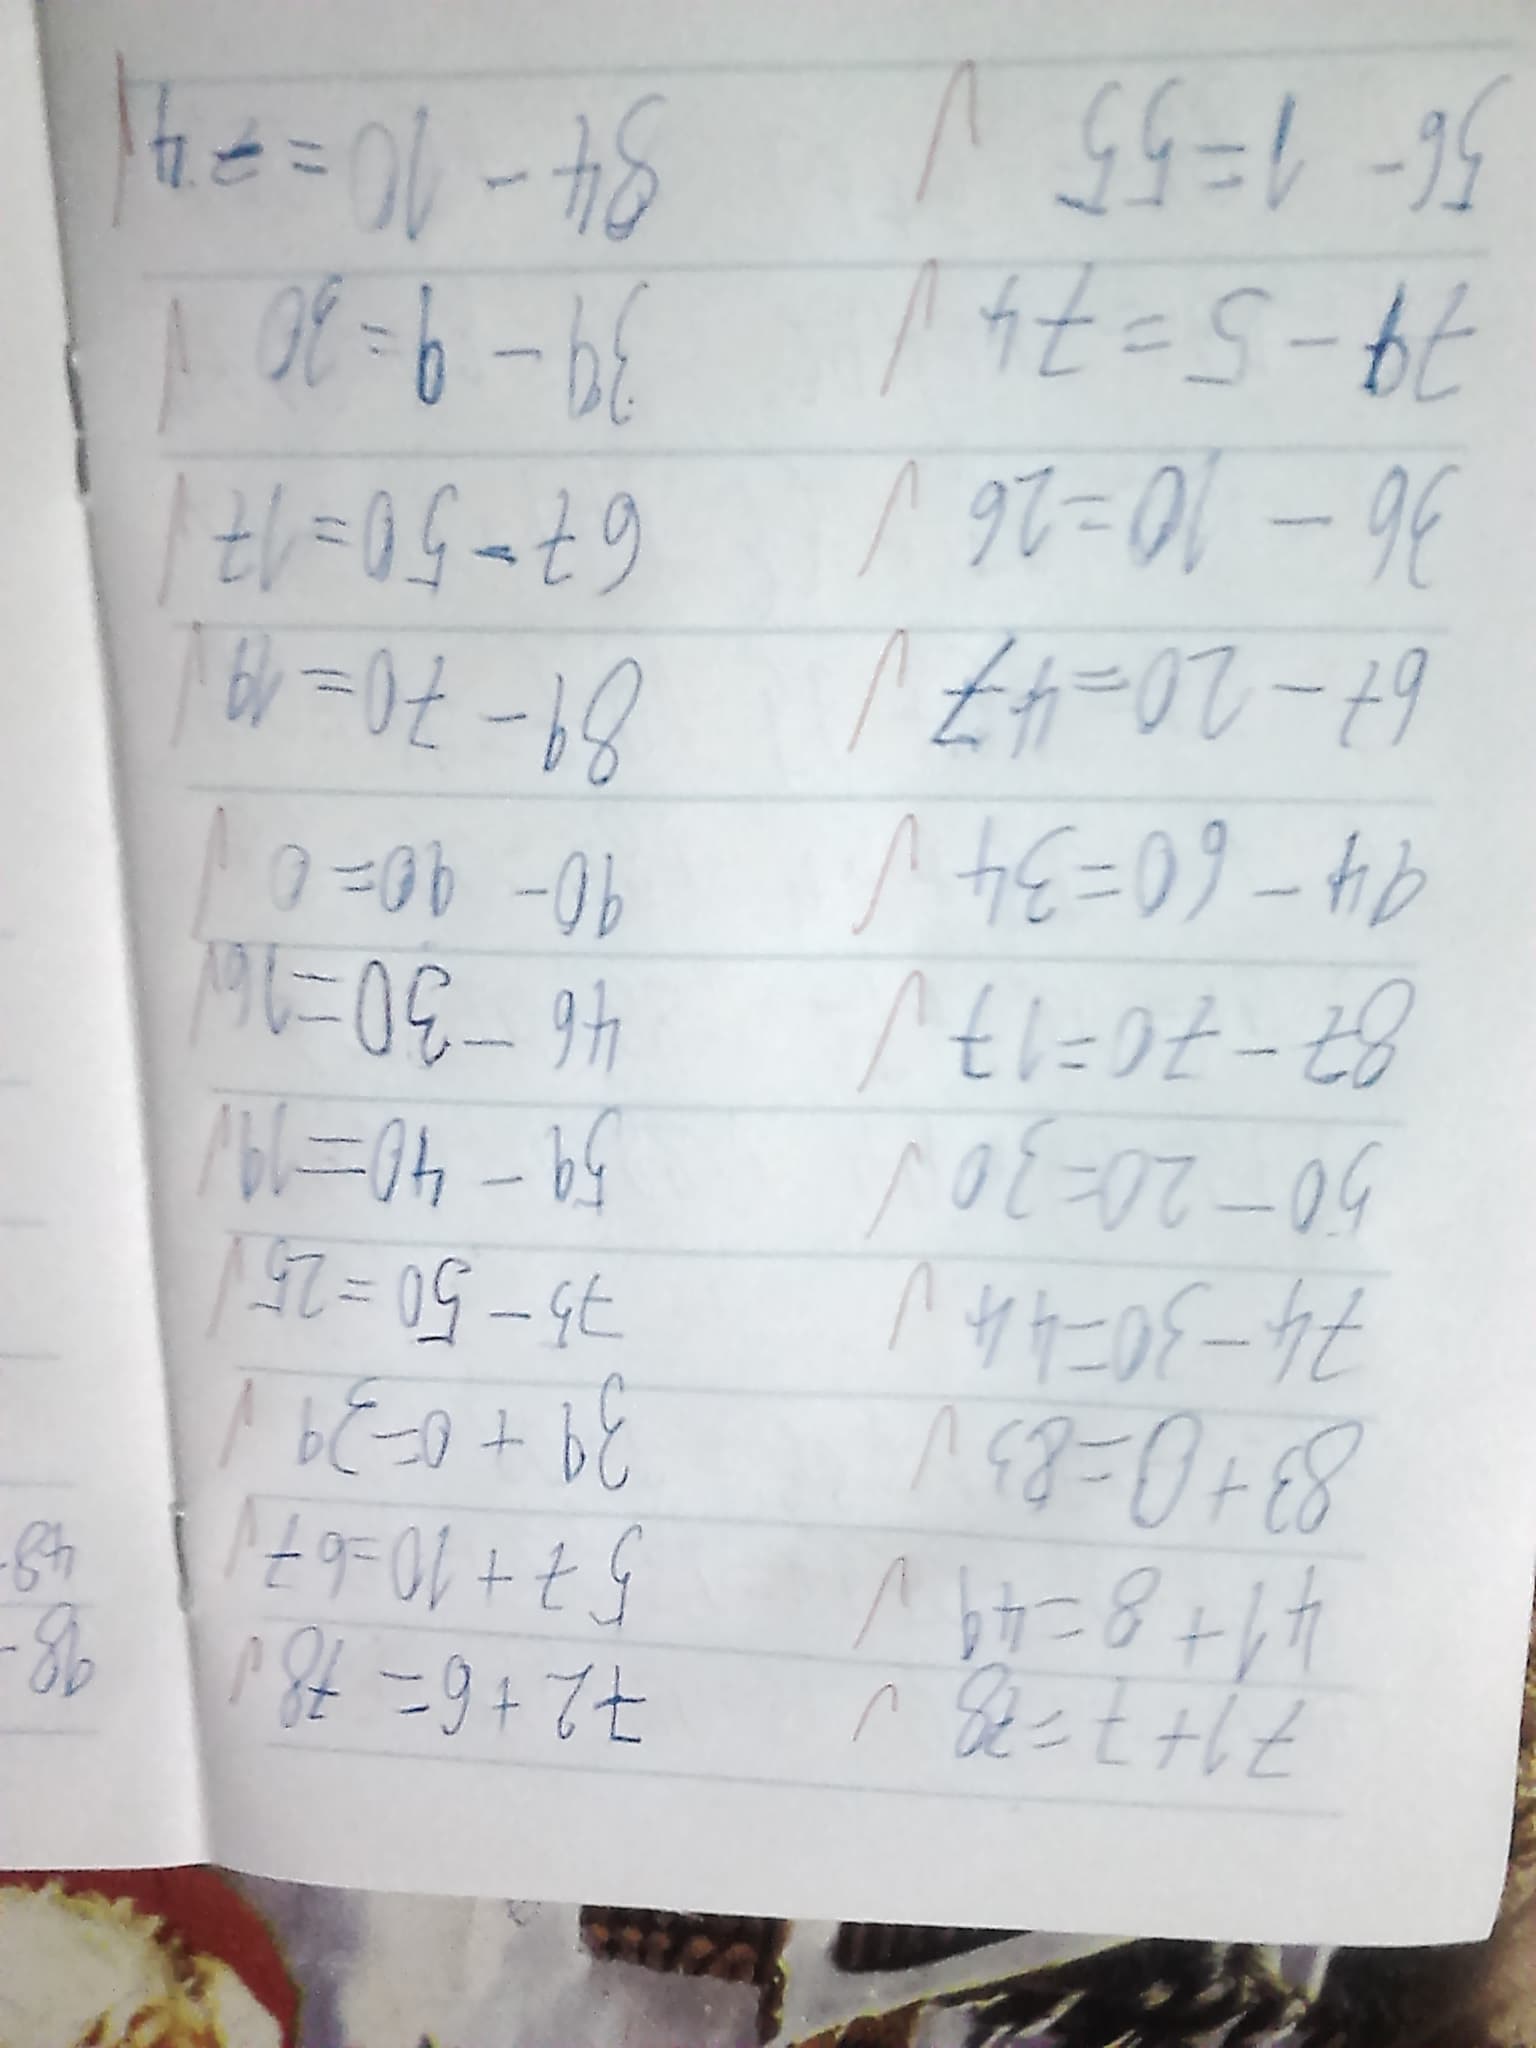 71+7=78 ✓ 72+6=78 ✓
41+8=49 ✓ 57+10=67 ✓
83+0=83 ✓ 39+0=39 ✓
74-30=44 ✓ 75-50=25 ✓
50-20=30 ✓ 59-40=19 ✓
87-70=17 ✓ 46-30=16 ✓
94-60=34 ✓ 90-90=0 ✓
67-20=47 ✓ 89-70=19 ✓
36-10=26 ✓ 67-50=17 ✓
79-5=74 ✓ 39-9=30 ✓
56-1=55 ✓ 84-10=74 ✓
98-
48-